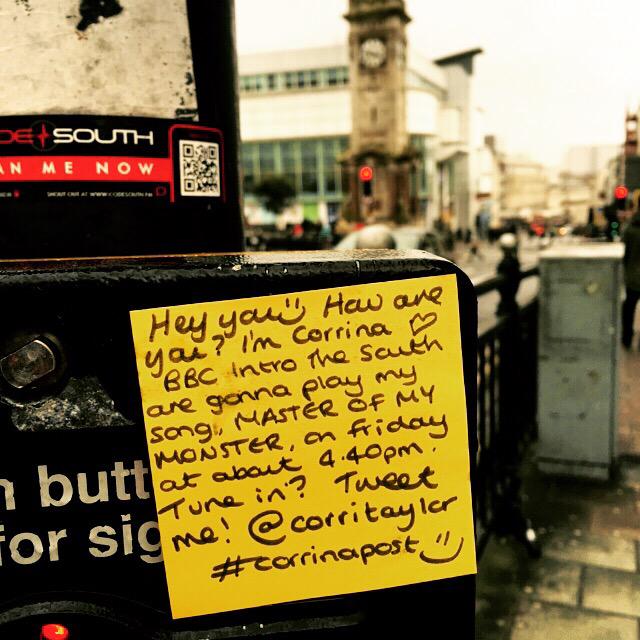 DE SOUTH
AN ME NOW
SHOUT OUT AT WWW.CODESOUTH.FM
Hey you How are
you? I'm Corrina
BBC Intro The South
are gonna play my
song, MASTER OF MY
MONSTER, on Friday
at about 4.40pm.
Tune in? Tweet
me! @corritaylor
#corrinapost
n butt
for sig